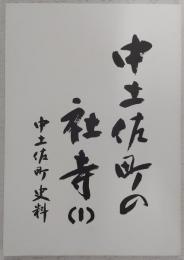 中土佐町の
社寺(1)
中土佐町史料